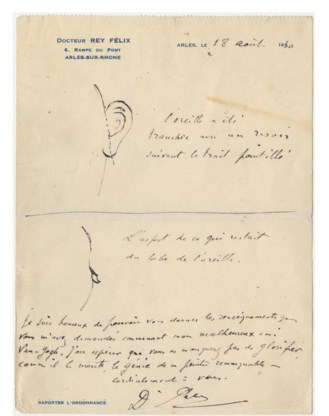 DOCTEUR REY FÉLIX
6, RAMPE DU PONT
ARLES-SUR-RHONE
ARLES, LE 18 août 1930
l'oreille a été
tranchée avec un rasoir
suivant le trait pointillé
L'aspect de ce qui restait
du lobe de l'oreille.
Je suis heureux de pouvoir vous donner les renseignements que
vous m'avez demandés concernant mon malheureux ami
Van-Gogh. J'ose espérer que vous ne manquerez pas de glorifier,
comme il le mérite, le génie de ce peintre remarquable
Cordialement à vous.
Dr Rey
RAPPORTER L'ORDONNANCE